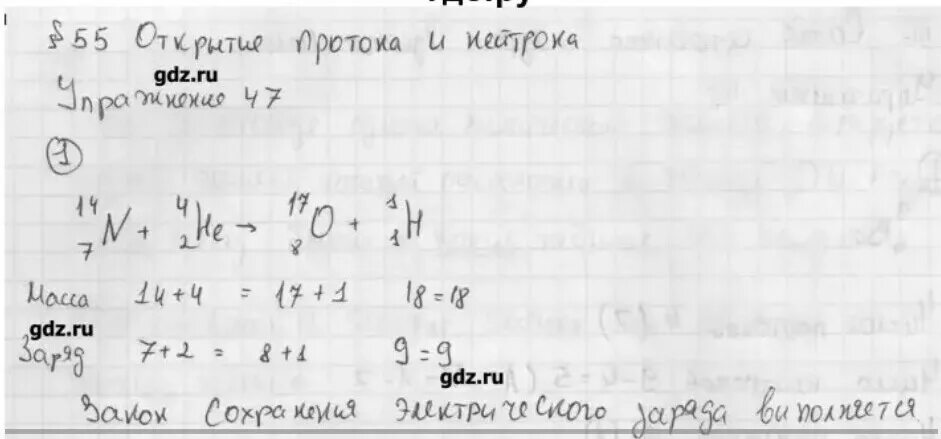 § 55 Открытие протона и нейтрона
gdz.ru
Упражнение 47
1
¹⁴₇N + ⁴₂He → ¹⁷₈O + ¹₁H
Масса 14+4 = 17+1 18=18
gdz.ru
Заряд 7+2 = 8+1 9=9
gdz.ru
Закон сохранения электрического заряда выполняется.